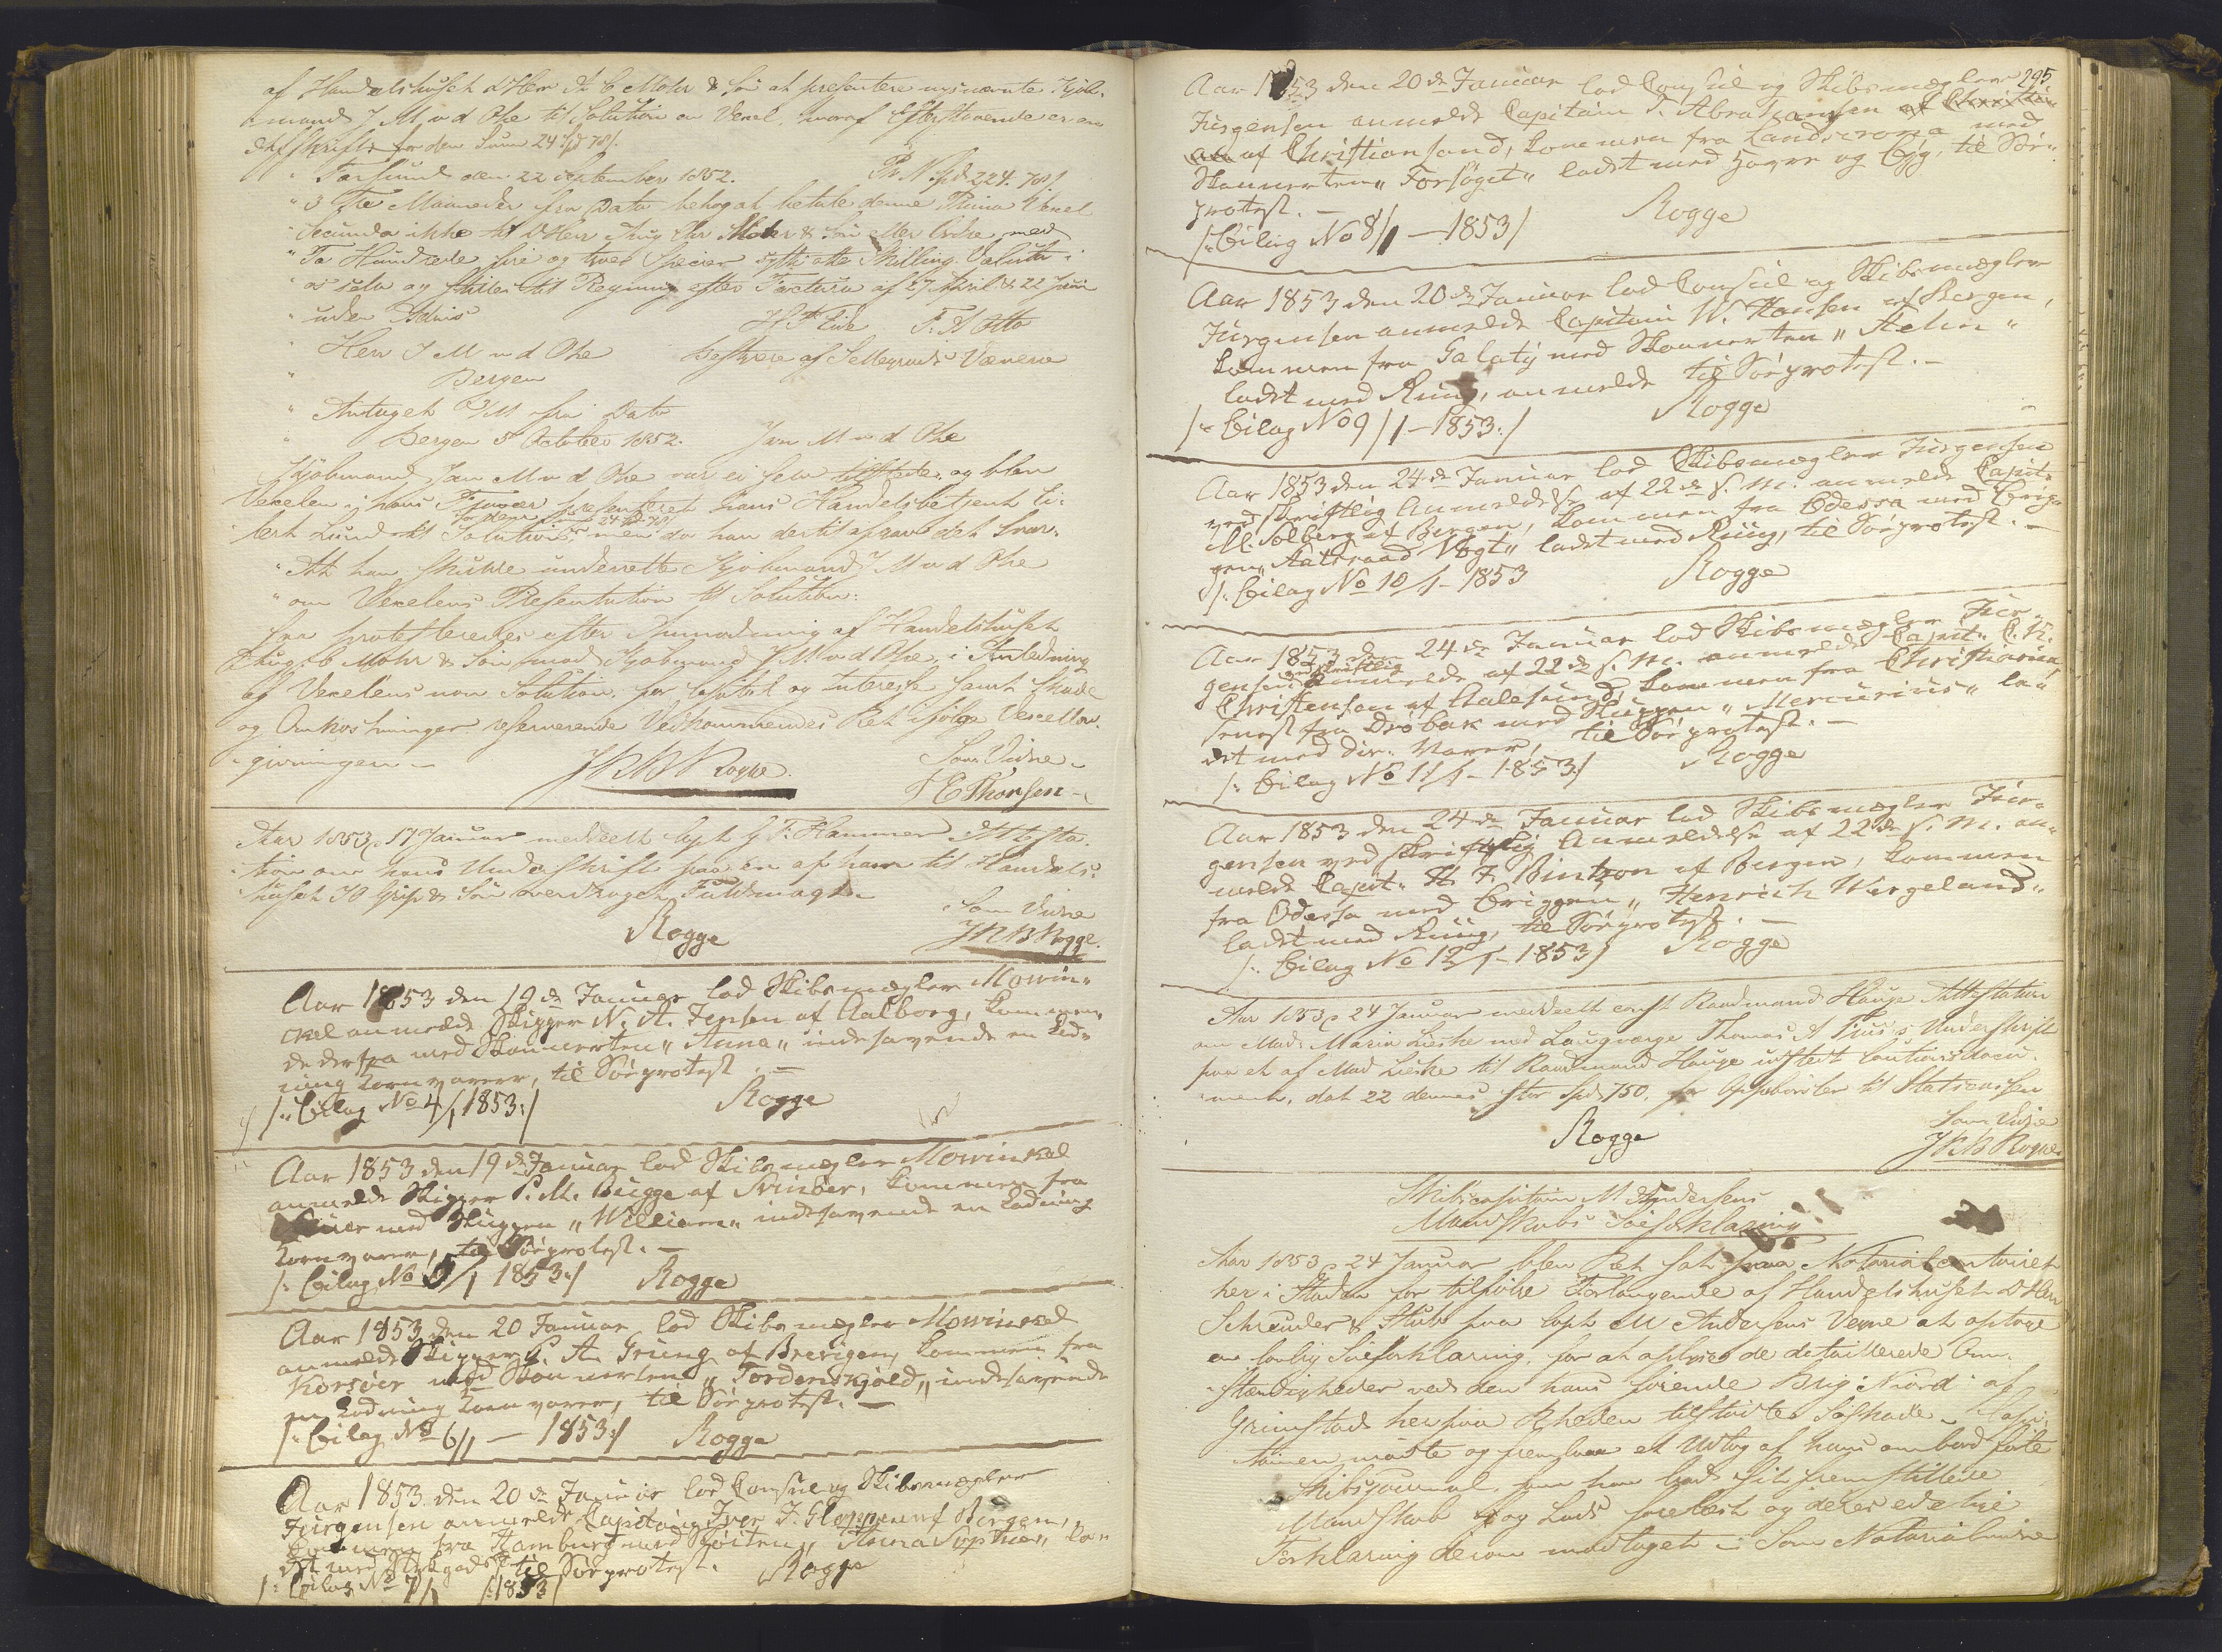 af Handelshuset d'Herr A C Mohr & Søn at presentere nysnævnte Kjøb-
mand J M v d Ohe til Solution en Vexel, hvoraf Efterstaaende er en
Afskrift for den Sum 24 Spd 78/.
" Farsund den 22 September 1852. Pr N Spd 224. 78/.
" 3 Tre Maaneder fra Dato behag at betale denne Prima Vexel
" Secunda ikke til d'Herr Aug Chr Mohr & Søn eller Ordre med
" To Hundrede fire og tyve Specier sytti otte Skilling Valuta i
" os selv og stilles til Regning efter Factura af 27 April & 22 Juni
" uden Advis H F Eide F. A Otto
" Herr J M v d Ohe Bestyrere af Sellegrods Væverie
" Bergen
" Antaget 3/M fra Dato
" Bergen 5 October 1852. Jan M v d Ohe
Kjøbmand Jan M v d Ohe var ei selv tilstede, og blev
Vexelen i hans Fravær presenteret hans Handelsbetjent Ei-
lert Lund til Solution for den Sum 24 Spd 78/ men da han dertil afgav det Svar:
" At han skulde underrette Kjøbmand J M v d Ohe
" om Vexelens Presentation til Solution:
saa protesteredes efter Anmodning af Handelshuset
Aug: C Mohr & Søn mod Kjøbmand J M v d Ohe, i Anledning
af Vexelens non Solution, for Capital og Interesse samt Skade
og Omkostninger reserverende Vedkommendes Ret ifølge Vexellov-
givningen.— Som Vidne
J R B Rogge. F E Thorsen

Aar 1853, 17 Januar meddeelt Capt G F. Hammer Attesta-
tion om hans Underskrift paa en af ham til Handels-
huset J O Grip & Søn overdraget Fuldmagt.—
Som Vidne
Rogge J R B Rogge.

Aar 1853 den 19de Januar lod Skibsmægler Mowin-
ckel anmelde Skipper N. A. Jensen af Aalborg, kommen-
de derfra med Skonnerten „Anna“ indehavende en Lad-
ning Kornvarer, til Søeprotest.—
/: Bilag No 4/1 1853:/ Rogge

Aar 1853 den 19de Januar lod Skibsmægler Mowinckel
anmelde Skipper P. M. Bugge af Svinöer, kommen fra
med Sluppen „William“ indehavende en Ladning
Kornvarer, til Søeprotest.—
/: Bilag No 5/1 1853:/ Rogge

Aar 1853 den 20 Januar lod Skibsmægler Mowinckel
anmelde Skipper P. A. Grüng af Brevigen, kommen fra
Korsöer med Skonnerten „Tordenskjold“, indehavende
en Ladning Kornvarer, til Søeprotest.—
/: Bilag No 6/1 — 1853:/ Rogge

Aar 1853. den 20de Januar lod Consul og Skibsmægler
Jürgensen anmelde Capitain Iver J. Gloppen af Bergen,
kommen fra Hamburg med Sköiten „Anna Sophia“, la-
det med Stykgods, til Søeprotest. Rogge
/: Bilag No 7/1 1853/

295
Aar 1853 den 20de Januar lod Consul og Skibsmægler
Jürgensen anmelde Capitain T. Abrahamsen af Christian
af Christiansand, kommen fra Landscrona med
Skonnerten „Forsøget“ ladet med Havre og Byg, til Søe-
protest.—
/: Bilag No 8/1 — 1853/ Rogge

Aar 1853 den 20de Januar lod Consul og Skibsmægler
Jürgensen anmelde Capitain W. Hansen af Bergen,
kommen fra Galatz med Skonnerten „Helin“
ladet med Rug, anmelde til Søeprotest.—
/: Bilag No 9/1 — 1853:/ Rogge

Aar 1853 den 24de Januar lod Skibsmægler Jürgensen
ved skriftlig Anmeldelse af 22de s. M. anmelde Capit.
M. Solberg af Bergen, kommen fra Odessa med Brig-
gen „Statsraad Vogt“ ladet med Rüg, til Søeprotest.—
/: Bilag No 10/1 - 1853 Rogge

Aar 1853 den 24de Januar lod Skibsmægler Jür-
gensen skriftlig anmelde af 22de s. M. anmelde Capit. C. K.
Christensen af Aalesund, kommen fra Christiania,
senest fra Dröbak med Sluppen „Mercurius“ la-
det med div. Varer, til Søeprotest.—
/: Bilag No 11/1 - 1853:/ Rogge

Aar 1853 den 24de Januar lod Skibsmægler Jür-
gensen ved skriftlig Anmeldelse af 22de s. M. an-
melde Capit. H. F. Bintzon af Bergen, kommen
fra Odessa med Briggen „Henrich Wergeland“
ladet med Rüg, til Søeprotest.—
/: Bilag No 12/1 - 1853/ Rogge

Aar 1853, 24 Januar meddeelt Raadmand Hauge Attestation
om Mad: Maria Lieske med Laugværge Thomas A Friis's Underskrift
paa et af Mad Lieske til Raadmand Hauge udstedt Cautionsdocu-
ment, dat 22 dennes stor Spd 750, for til Statscassen
Som Vidne
Rogge J R B Rogge

Skibscapitain M Andersens
Mandskabs Søeforklaring
Aar 1853, 24 Januar blev Ret sat paa Notarialcontoiret
her i Staden for tilfølge Forlangende af Handelshuset D'Hrr
Schreuder & Stub paa Capt M Andersens Vegne at optage
en lovlig Søeforklaring, for at oplyse de detaillerede Om-
stændigheder ved den hans førende Brig Niord af
Grimstad her paa Rheden tilstødte Søskade.— Capi-
tainen mødte og fremlagde et Udtog af hans ombord førte
Skibsjournal, som han bad sit fremstillede
Mandskab og Lods forelæst og deres edelige
Forklaring derom modtaget.— Som Notarialvidne